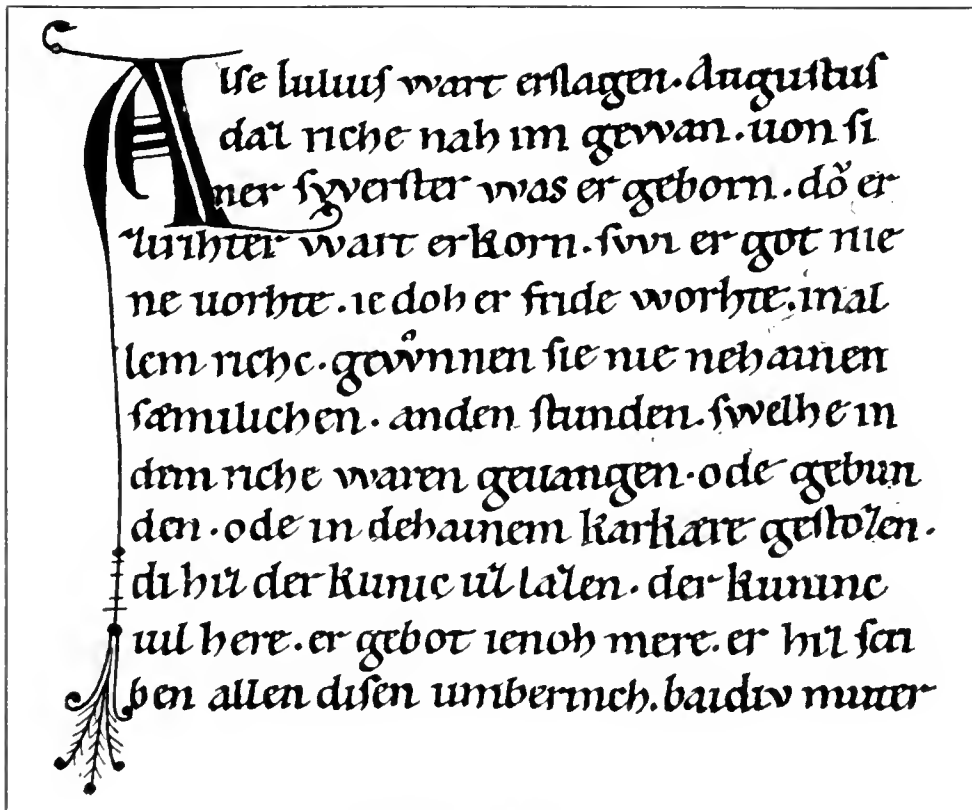 Alse Iuliuſ wart erſlagen. Auguſtuſ
daz riche nah im gewan. uon ſi
ner ſwerſter was er geborn. do͛ er
zurihter wart erkorn. ſwi er got nie
ne uorhte. ie doh er fride worhte. in al
lem riche. gewͦnnen ſie nie nehainen
ſæmilichen. an den ſtunden. ſwelhe in
dem riche waren geuangen. ode gebun
den. ode in dehainem karkære geſtozen.
di hiz der kunic uz lazen. der kuninc
uil here. er gebot ienoh mere. er hiz ſcri
ben allen diſen umberinch. baidiv muter